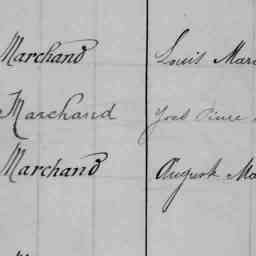 Marchand Louis Marc
Marchand Joel Pierre
Marchand August Ma